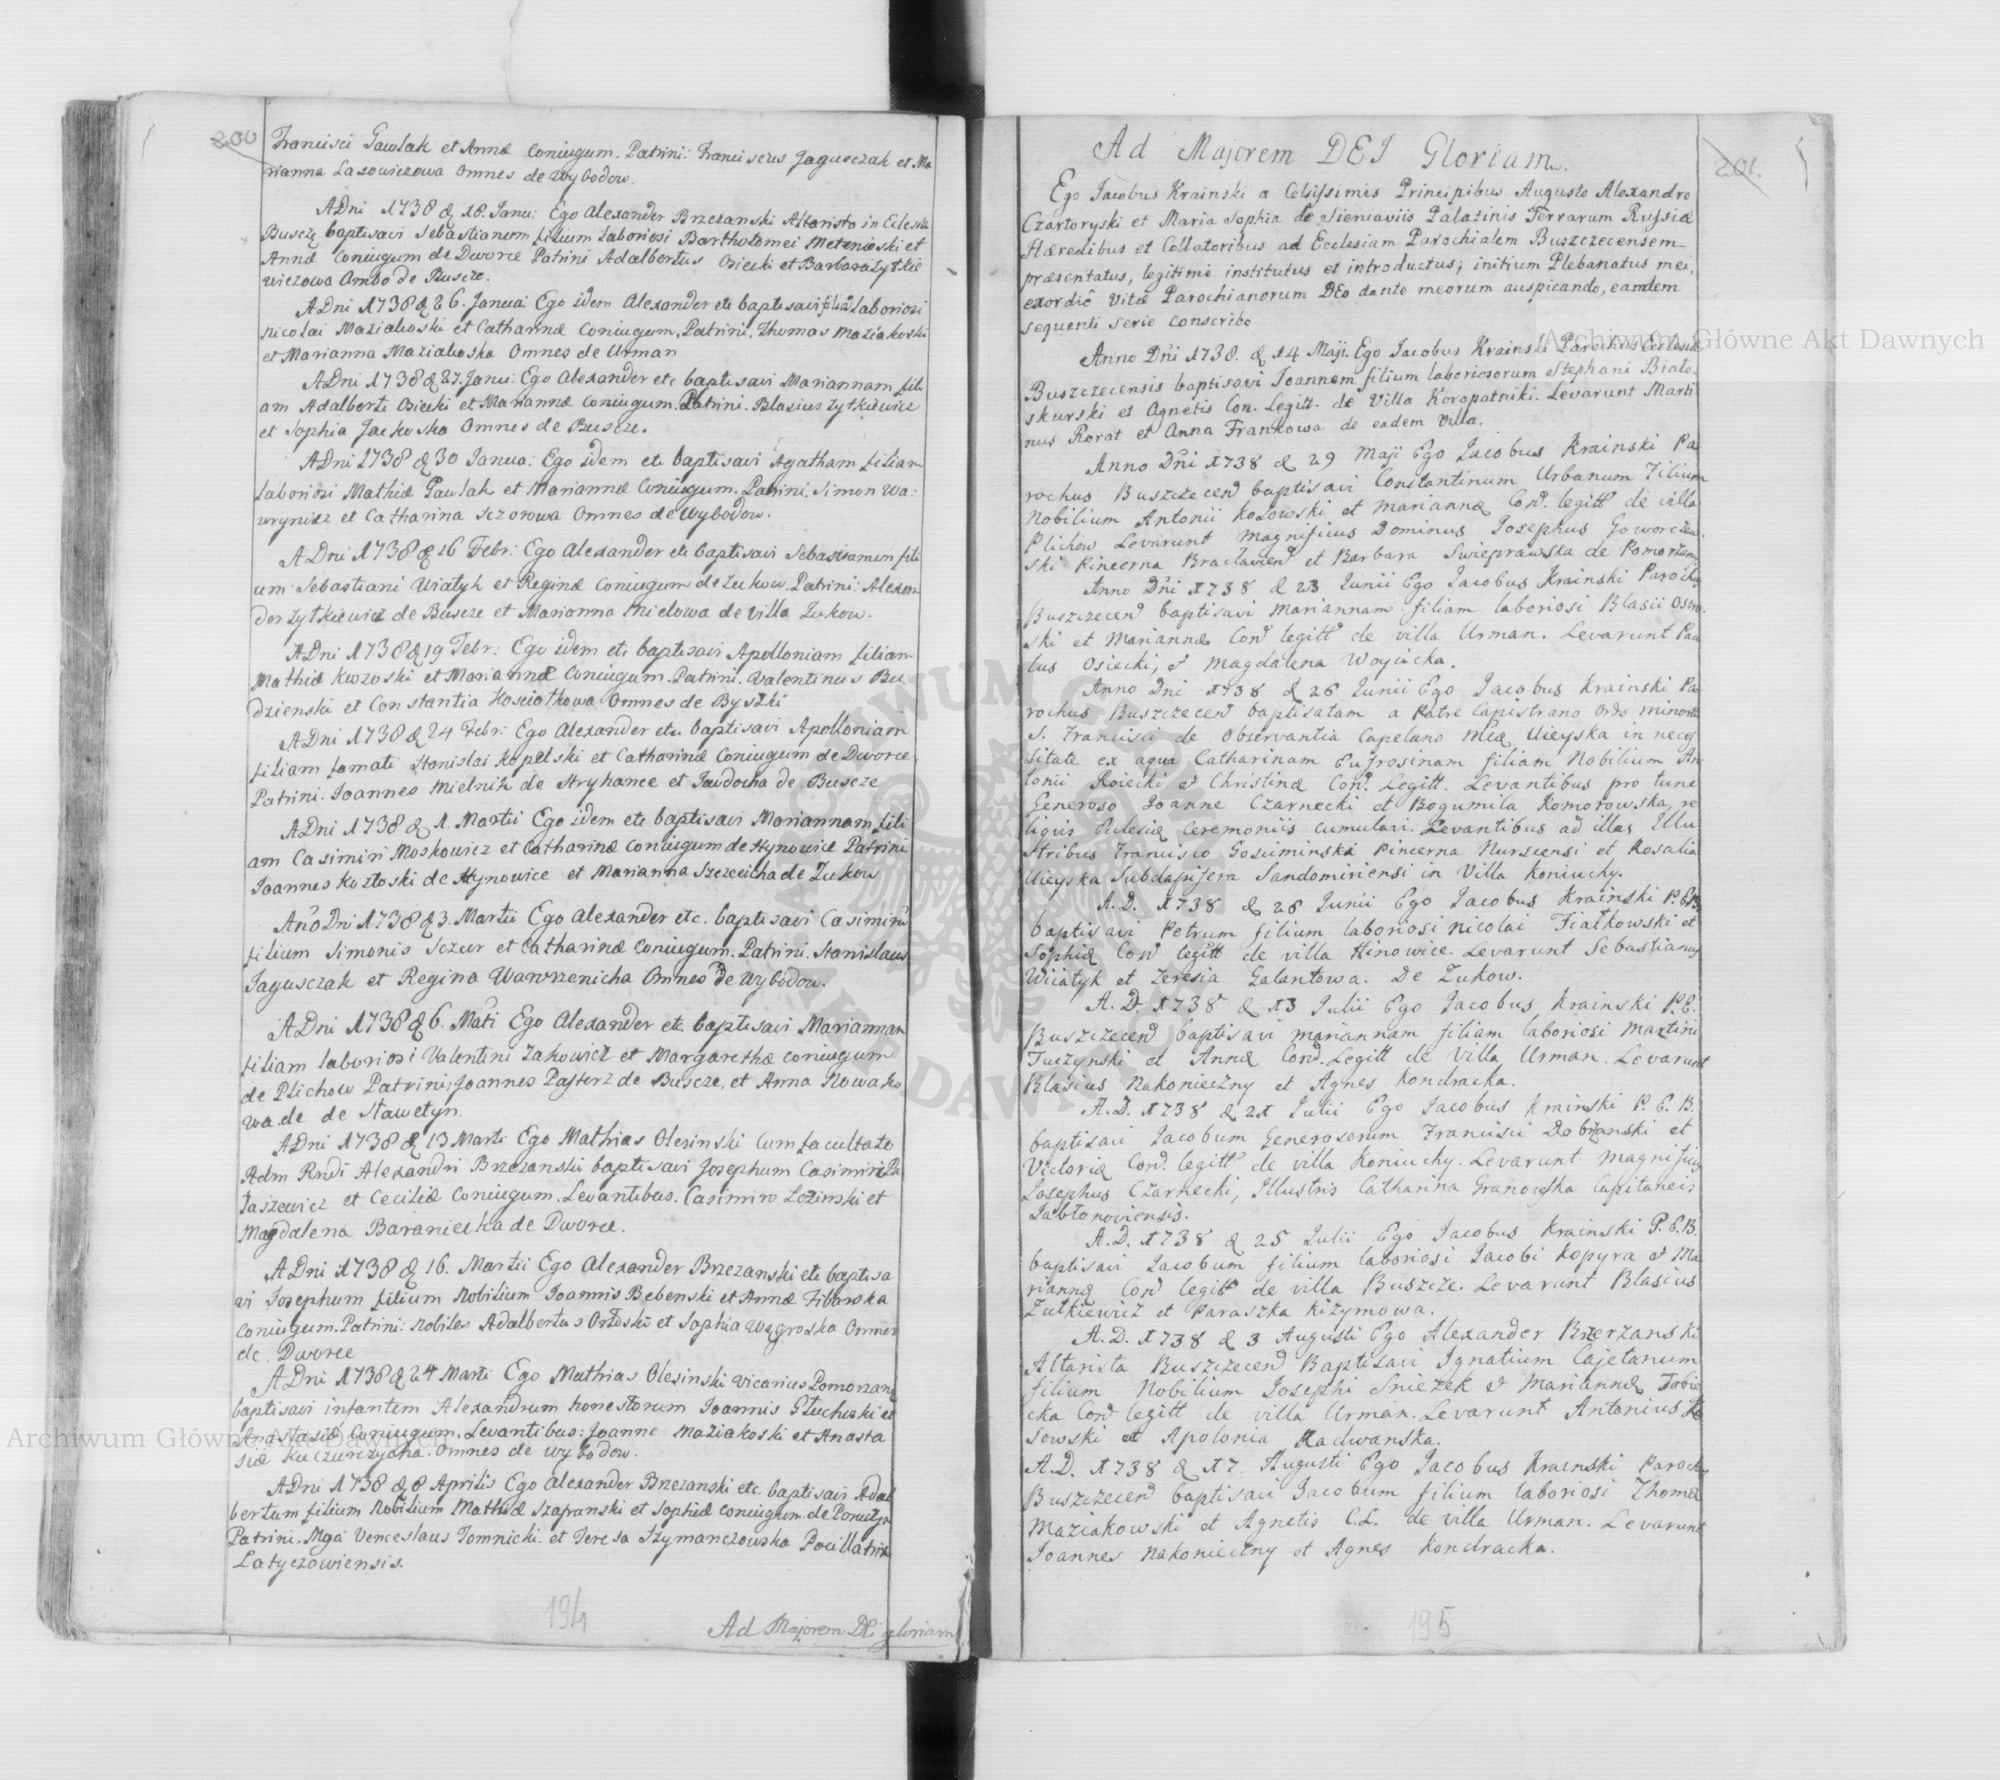 200
Francisci Gawlak et Annæ Coniugum. Patrini: Franciscus Jagusczak et Ma
rianna Lazowiczowa Omnes de Wybodow.
ADni 1738 & 18. Janu: Ego Alexander Brzezanski Altarista in Eclesia
Buscz baptisavi Sebastianum filium laboriosi Bartholomei Metenioski et
Annæ Coniugum de Dworce Patrini Adalbertus Osiecki et Barbara Zytkie
wiczowa Ambo de Buscze.
ADni 1738 & 26. Janua: Ego idem Alexander etc baptisavi filiã Laboriosi
Nicolai Maziakoski et Catharinæ Coniugum. Patrini. Thomas Maziakoski
et Marianna Maziakoska Omnes de Urman
ADni 1738 & 27. Janu: Ego Alexander etc baptisavi Mariannam fili
am Adalberti Osiecki et Mariannæ Coniugum. Patrini. Blasius Zytkiewicz
et Sophia Jackoska Omnes de Buscze.
ADni 1738 & 30 Janua: Ego idem etc baptisavi Agatham filiam
laboriosi Mathiæ Pawlak et Mariannæ Coniugum. Patrini. Simon Wa:
wrynicz et Catharina Sczorowa Omnes de Wybodow.
ADni 1738 & 16 Febr: Ego Alexander etc baptisavi Sebastianum fili
um Sebastiani Wiatyk et Reginæ Coniugum de Zukow. Patrini: Alexan
der Zytkiewicz de Buscze et Marianna Mielowa de Villa Zukow.
ADni 1738 & 19 Febr: Ego idem etc baptisavi Apolloniam filiam
Mathiæ Kwzoski et Mariannæ Coniugum. Patrini. Valentinus Bu:
dzienski et Constantia Kosciotkowa Omnes de Byszki
ADni 1738 & 24 Febr: Ego Alexander etc. baptisavi Apolloniam
filiam famati Stanislai Kopelski et Catharinæ Coniugum de Dworce
Patrini. Joannes Mielnik de Stryhance et Jawdocha de Buscze
ADni 1738 & 1. Martii Ego idem etc baptisavi Mariannam fili
am Casimiri Moskowicz et Catharinæ Coniugum de Hynowice Patrini
Joannes Kozłoski de Hynowice et Marianna Szczecicha de Zukow
Año Dni 1738 & 3. Martii Ego Alexander etc. baptisavi Casimirũ
filium Simonis Sczur et Catharinæ Coniugum. Patrini. Stanislaus
Jagusczak et Regina Wawrzenicha Omnes de Wybodow.
ADni 1738 & 6. Mãti Ego Alexander etc. baptisavi Mariannam
filiam laboriosi Valentini Zakowicz et Margarethæ coniugum
de Plichow Patrini; Joannes Pasterz de Buscze, et Anna Nowako
wa de de Stawetyn.
ADni 1738 & 13 Marti Ego Mathias Olesinski Cum facultate
Adm Rndi Alexandri Brzezanski baptisavi Josephum Casimiri Ta
taszewicz et Ceciliæ Coniugum. Levantibus. Casimiro Lozinski et
Magdalena Baraniecka de Dworce.
ADni 1738 & 16. Martii Ego Alexander Brzezanski etc baptisa
vi Josephum filium Nobilium Joannis Bebenski et Annæ Zibarska
Coniugum. Patrini: Nobiles Adalbertus Ortoski et Sophia Węgroska Omnes
de Dworce
ADni 1738 & 24 Marti Ego Mathias Olesinski Vicarius Pomorzane
baptisavi infantem Alexandrum honestorum Joannis Głuchski et
Anastasiæ Coniugum. Levantibus: Joanne Maziakoski et Anasta
siæ Kuczurczycha. Omnes de Wybodow.
ADni 1738 & 8 Aprilis Ego Alexander Brzezanski etc. baptisavi Adal
bertum filium Nobilium Mathiæ Szafranski et Sophiæ Coniugum. de
Patrini. Mgã Venceslaus Tomnicki. et Teresa Szymanczowska Pocillatrix
Latyczowiensis.
194
Ad Majorem DEi gloriam
201.
Ad Majorem DEI Gloriam.
Ego Jacobus Krainski a Celsissimis Principibus Augusto Alexandro
Czartoryski et Maria Sophia de Sieniaviis Palatinis Terrarum Russiæ
Hæredibus et Collatoribus ad Ecclesiam Parochialem Buszczecensem
præsentatus, legitimè institutus et introductus; initium Plebanatus mei,
exordiô Vitæ Parochianorum DEo dante meorum auspicando, eamdem
sequenti serie conscribo
Anno Dñi 1738. & 14 Maji. Ego Jacobus Krainski Parochus Ecclesiæ
Buszczecensis baptisavi Joannem filium laboriosorum Stephani Biało-
skurski et Agnetis Con. Legitt. de Villa Koropatniki. Levarunt Marti
nus Rorat et Anna Frankowa de eadem Villa.
Anno Dñi 1738 & 29 Maji Ego Jacobus Krainski Pa
rochus Buszczecen baptisavi Constantinum Urbanum Filium
Nobilium Antonii Kosowski et Mariannæ Con. legitt de villa
Plichow Levarunt Magnificus Dominus Josephus Goworczew
ski Pincerna Bracłavien et Barbara Swieprawska de Pomorzany
Anno Dñi 1738 & 23 Junii Ego Jacobus Krainski Parochus
Buszczecen baptisavi Mariannam filiam laboriosi Blasii Ostro
ski et Mariannæ Con legitt de villa Urman. Levarunt Pau
lus Osiecki, et Magdalena Woyicka.
Anno Dni 1738 & 26 Junii Ego Jacobus Krainski Pa
rochus Buszczecen baptisatam a Patre Capistrano Ords minoru
S. Francisci de Observantia Capelano Mcæ Uieyska in neces
sitate ex aqua Catharinam Eufrosinam filiam Nobilium An
tonii Roiecki et Christinæ Con. Legitt. Levantibus pro tunc
Generoso Joanne Czarnecki et Bogumila Komorowska, re
liquis Eclesiæ Ceremoniis cumulavi. Levantibus ad illas Illu
stribus Francisco Gosciminski Pincerna Nurscensi et Rosalia
Uieyska Subdapifera Sandomiriensi in Villa Koniuchy.
A. D. 1738 & 28 Junii Ego Jacobus Krainski P. E. B.
baptisavi Petrum filium laboriosi Nicolai Fiałkowski et
Sophiæ Con legitt de villa Hinowice. Levarunt Sebastianus
Wiiatyk et Teresia Galantowa. De Zukow.
A. D. 1738 & 13 Julii Ego Jacobus Krainski P. E.
Buszczecen baptisavi Mariannam filiam laboriosi Martini
Tuczynski et Annæ Con. Legitt de Villa Urman. Levarunt
Blasius Nakonieczny et Agnes Kondracka.
A. D. 1738 & 21 Julii Ego Jacobus Krainski P. E. B.
baptisavi Jacobum Generosorum Francisci Dobrzanski et
Victoriæ Con. legitt de villa Koniuchy. Levarunt Magnificus
Josephus Czarnecki, Illustris Catharina Granowska Capitaneis
Jabłonoviensis.
A. D. 1738 & 25 Julii Ego Jacobus Krainski P. E. B.
baptisavi Jacobum filium laboriosi Jacobi Kopyra et Ma
riannæ Con legitt de villa Buszcze. Levarunt Blasius
Zutkiewicz et Paraszka Kizymowa.
A. D. 1738 & 3 Augusti Ego Alexander Brzerzanski
Altarista Buszczecen Baptisavi Ignatium Cajetanum
filium Nobilium Josephi Sniezek et Mariannæ
cka Con legitt de villa Urman. Levarunt Antonius Ko
sowski et Apolonia Radwanska.
A. D. 1738 & 17. Augusti Ego Jacobus Krainski Parochus
Buszczecen baptisavi Jacobum filium laboriosi Thomæ
Maziakowski et Agnetis C.L. de villa Urman. Levarunt
Joannes Nakonieczny et Agnes Kondracka.
195
Archiwum Główne Akt Dawnych
Archiwum Główne Akt Dawnych
ARCHIWUM GŁÓWNE AKT DAWNYCH